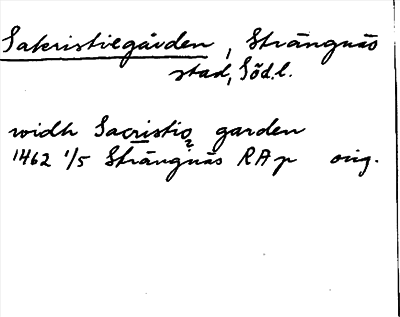 Sakristiegården, Strängnäs
stad, Söd.l.
widh Sacristio garden
1462 1/5 Strängnäs RAp orig.